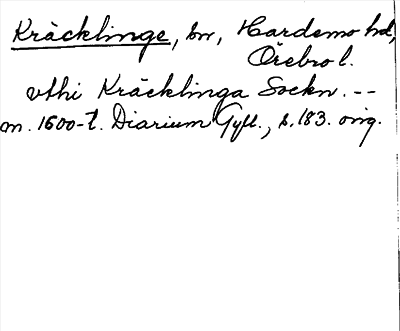 Kräcklinge, sn, Hardemo hd,
Örebro l.
vthi Kräcklinga Sockn. --
m. 1600-t. Diarium Gyll., s. 183. orig.